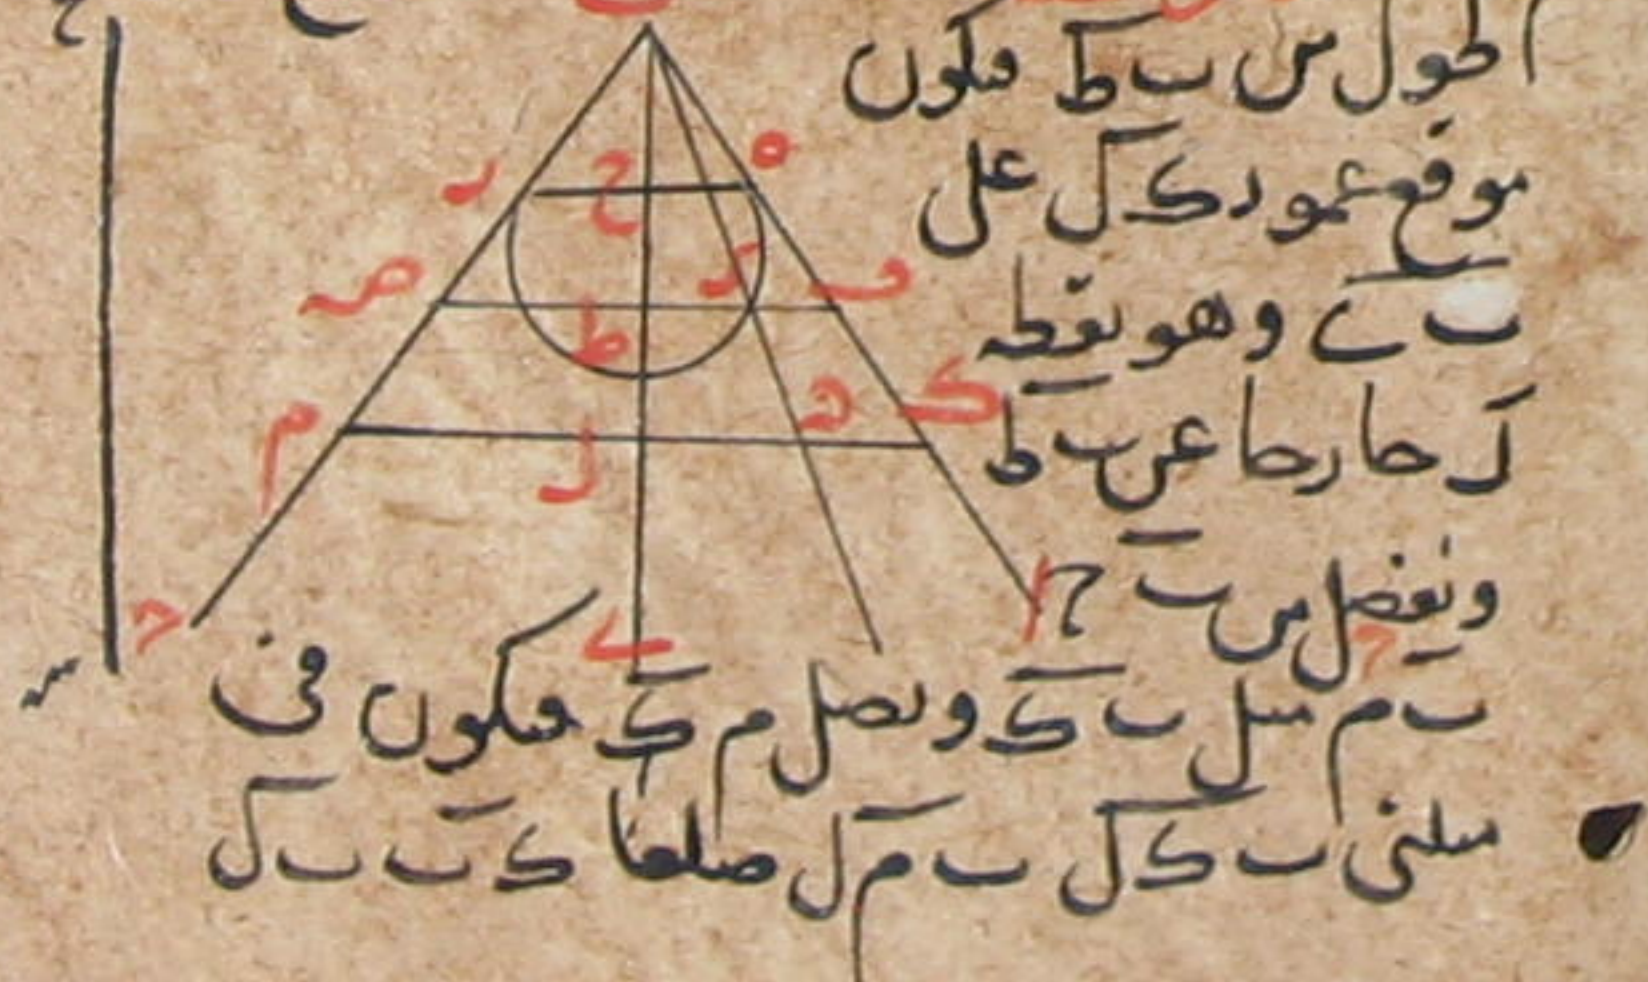 اطول من ب ط فيكون
موقع عمود ك ل على
ب ى وهو نقطة
ل خارجا عن ب ط
ونفصل من ب ح
ب م مثل ب ك ونصل م ك فيكون فى
مثلثى ب ك ل ب م ل ضلعا ك ب ب ل
ه
ح
ر
ف
صه
ط
ك
م
ل
ا
ى
ح